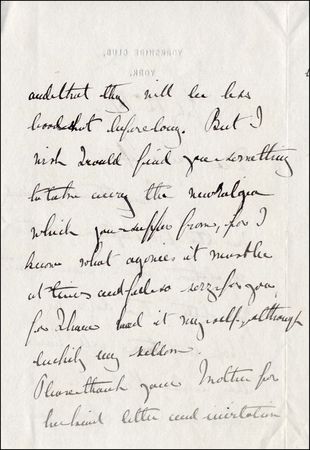 YORKSHIRE CLUB,
YORK.
and that they will be less
before long. But I
wish I could find you something
to take away the newralgia
which you suffer from, for I
know what agonies it must be
at times and feel so sorry for you,
for I have had it myself, although
luckily very seldom.
Please thank your Mother for
her kind letter and invitation